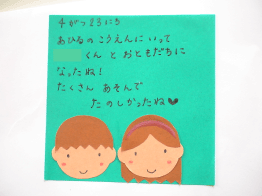 4がつ23にち
あひるのこうえんにいって
くんとおともだちに
なったね!
たくさんあそんで
たのしかったね♥